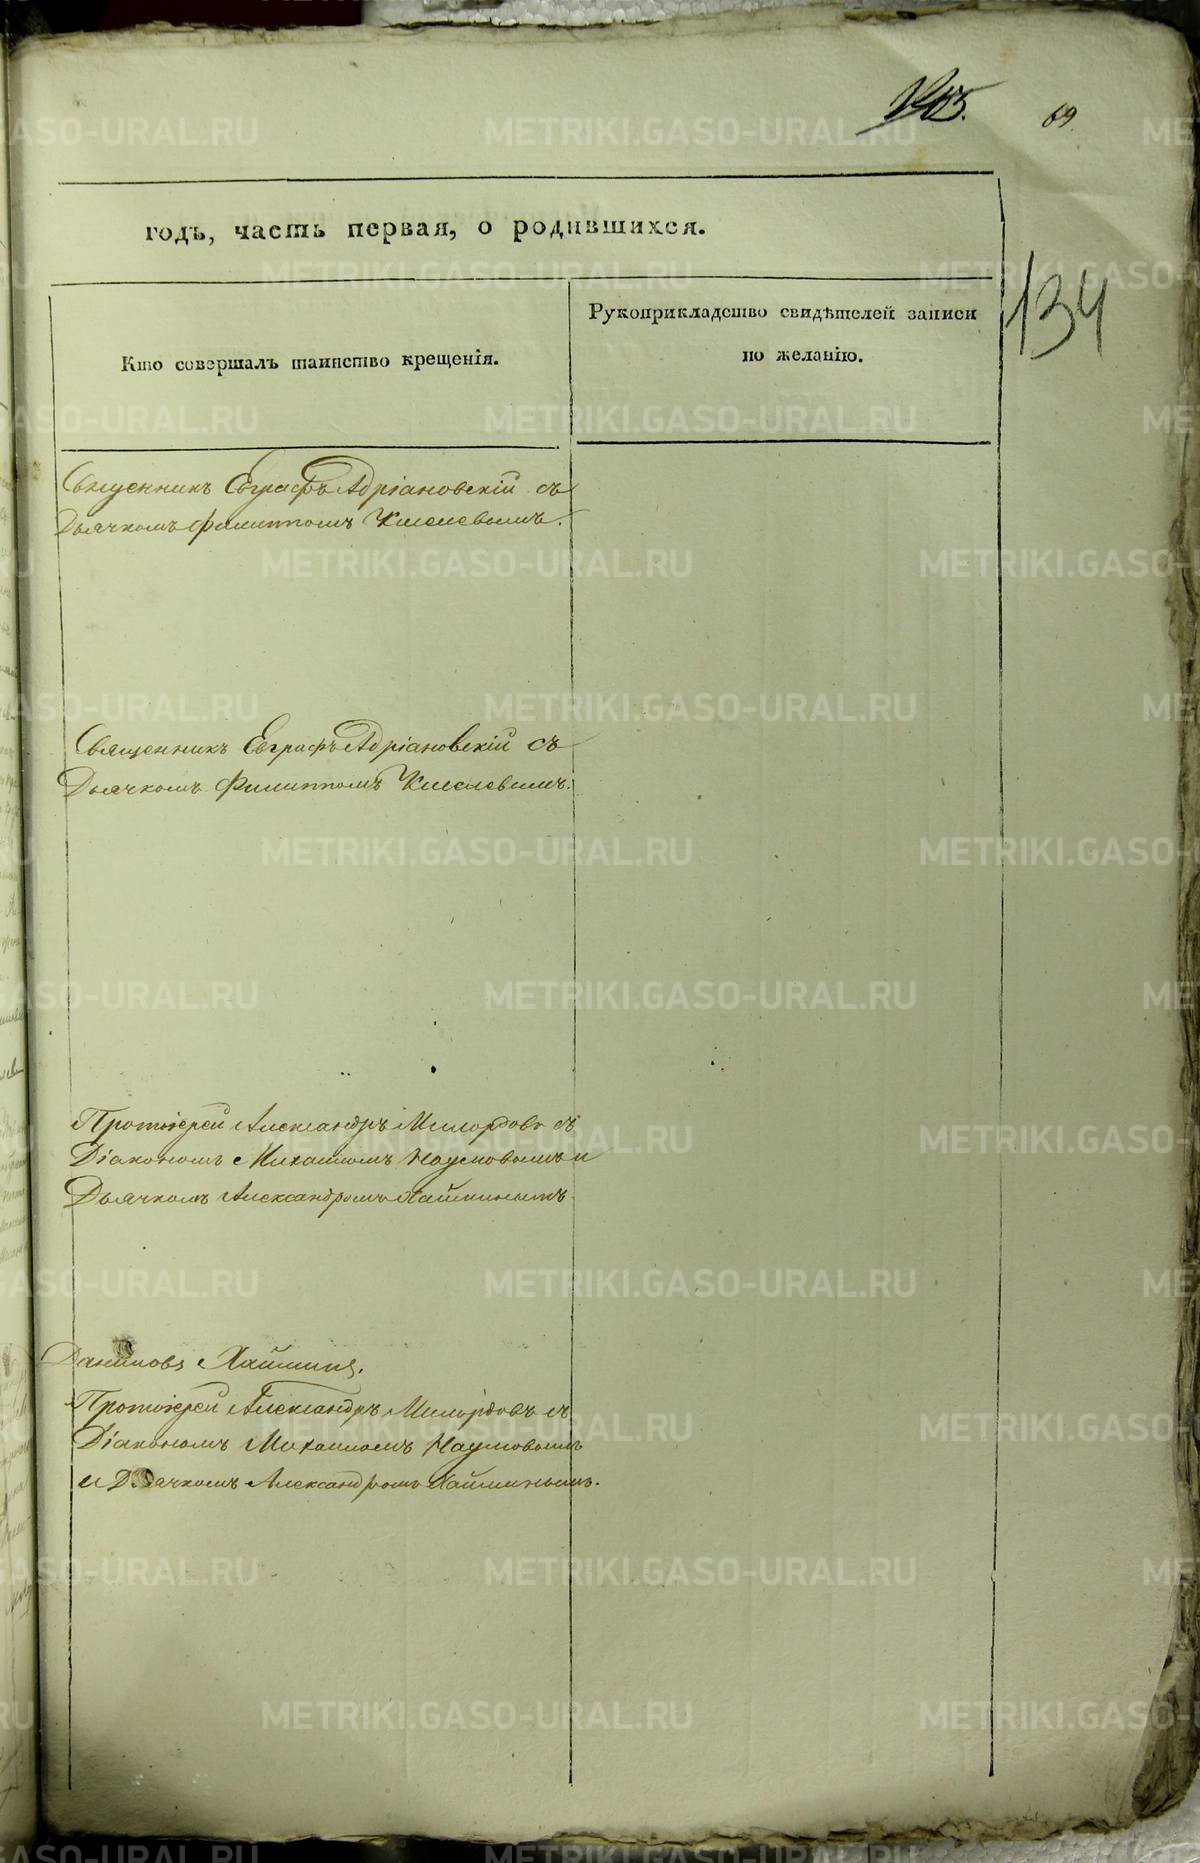 69
годъ, часть первая, о родившихся.
134
Кто совершалъ таинство крещенія.
Рукоприкладство свидѣтелей записи
по желанію.
Священникъ Евграфъ Адріановскій съ
Дьячкомъ Филиппомъ Киселевымъ.
Священникъ Евграфъ Адріановскій съ
Дьячкомъ Филиппомъ Киселевымъ.
Протоіерей Александръ Милордовъ съ
Діакономъ Михаиломъ Наумовымъ и
Дьячкомъ Александромъ Хайминымъ.
Хаймина.
Протоіерей Александръ Милордовъ съ
Діакономъ Михаиломъ Наумовымъ
и Дьячкомъ Александромъ Хайминымъ.
METRIKI.GASO-URAL.RU